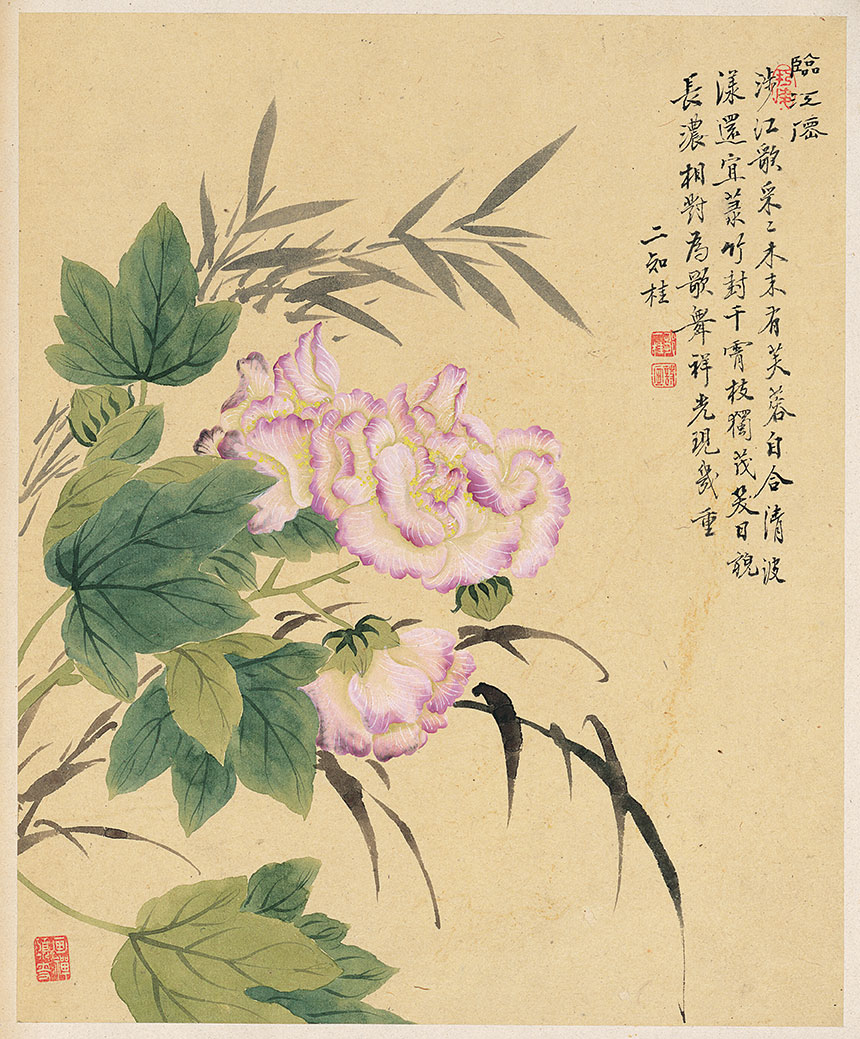 臨江僊
涉江歌采〻木末有芙蓉自合清波
漾還宜菉竹封干霄枝獨茂日
長濃相對為歌舞祥光現幾重
二知桂